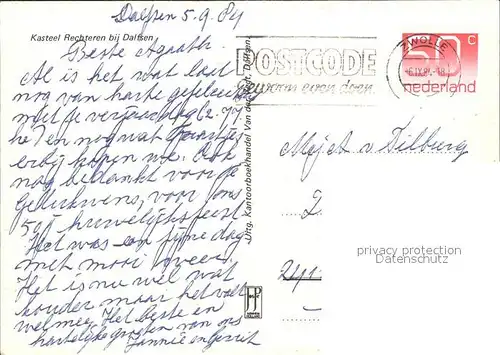 Dalfsen 5.9.84
Kasteel Rechteren bij Dalfsen
Beste Agaath.
Al is het wat laat
nog van harte gefeliciteerd
met je verjaardag
he? en nog wat
erbij hopen we. Ook
nog bedankt voor de
gelukwens, voor ons
50 j huwelijksfeest.
Het was een fijne dag
met mooi weer.
Het is nu wel wat
kouder maar het valt
wel mee. Het beste en
hartelijke groeten van ons
Jannie en gerrit
Uitg. Kantoorboekhandel Van der Vegt, Dalfsen
POSTCODE
gewoon even doen.
ZWOLLE
-6.IX.84.-18
50 c
nederland
Mej. A v Tilburg
2
privacy protection
Datenschutz
JP